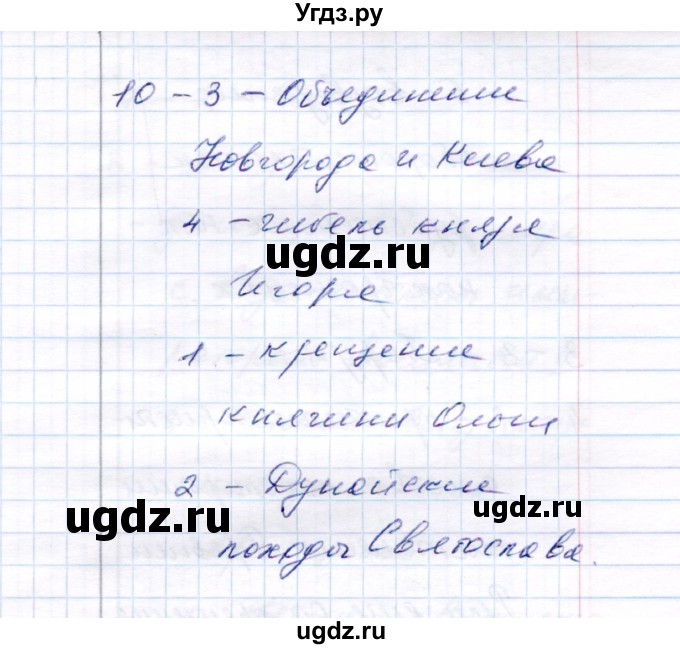 Угдз.ру
10 – 3 – Объединение
Новгорода и Киева
4 – гибель князя
ugdz.ru
Игоря
1 – крещение
ugdz.ru
княгини Ольги
2 – Дунайские
ugdz.ru
ugdz.ru
походы Святослава.
ugdz.ru